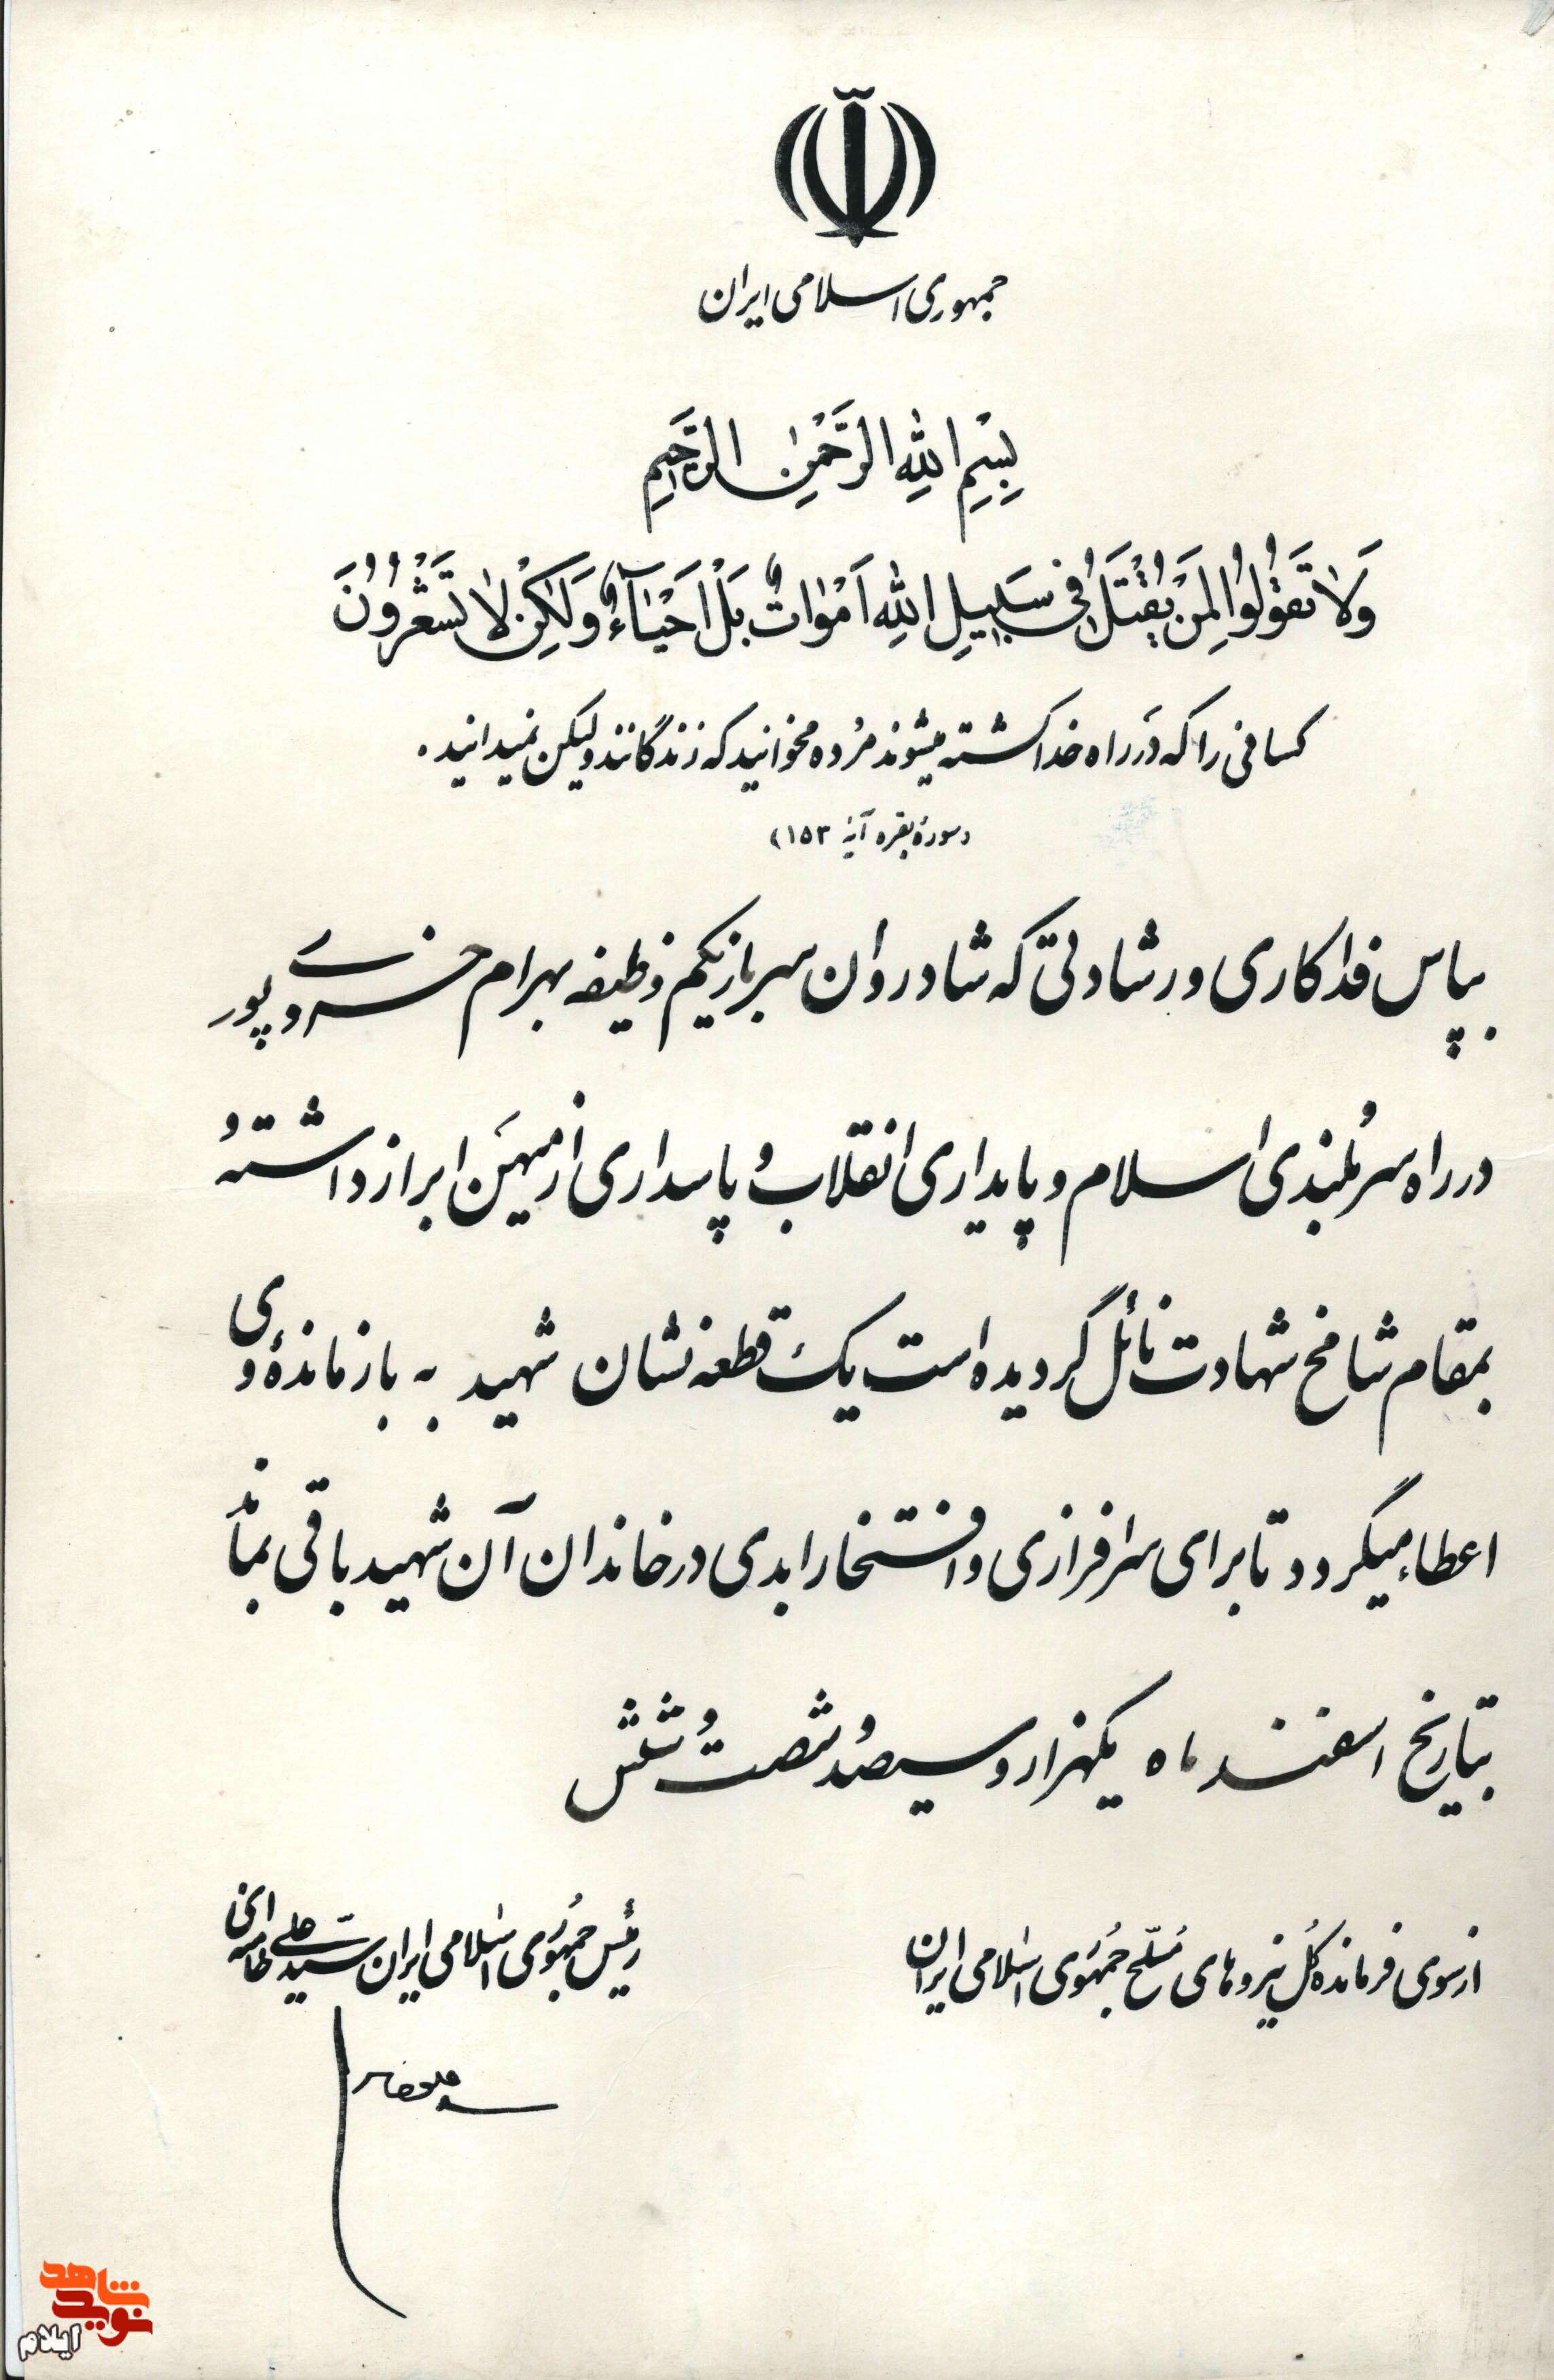 جمهوری اسلامی ایران
بِسْمِ اللهِ الرَّحْمٰنِ الرَّحیمِ
وَلا تَقُولُوا لِمَنْ یُقْتَلُ فی سَبیلِ اللهِ اَمْواتٌ بَلْ اَحْیآءٌ وَلٰکِنْ لا تَشْعُرُونَ
کسانی را که در راه خدا کشته میشوند مرده مخوانید که زندگانند ولیکن نمیدانید.
(سورهٔ بقره آیهٔ ۱۵۳)
بپاس فداکاری و رشادتی که شادروان سرباز یکم وظیفه بهرام خسروی پور
در راه سربلندی اسلام و پایداری انقلاب و پاسداری از میهن ابراز داشته و
بمقام شامخ شهادت نائل گردیده است یک قطعه نشان شهید به بازماندهٔ وی
اعطاء میگردد تا برای سرافرازی و افتخار ابدی در خاندان آن شهید باقی بماند
بتاریخ اسفند ماه یکهزار و سیصد و شصت و شش
از سوی فرمانده کل نیروهای مسلح جمهوری اسلامی ایران
رئیس جمهوری اسلامی ایران سید علی خامنه ای
شاهد
نوید
ایلام